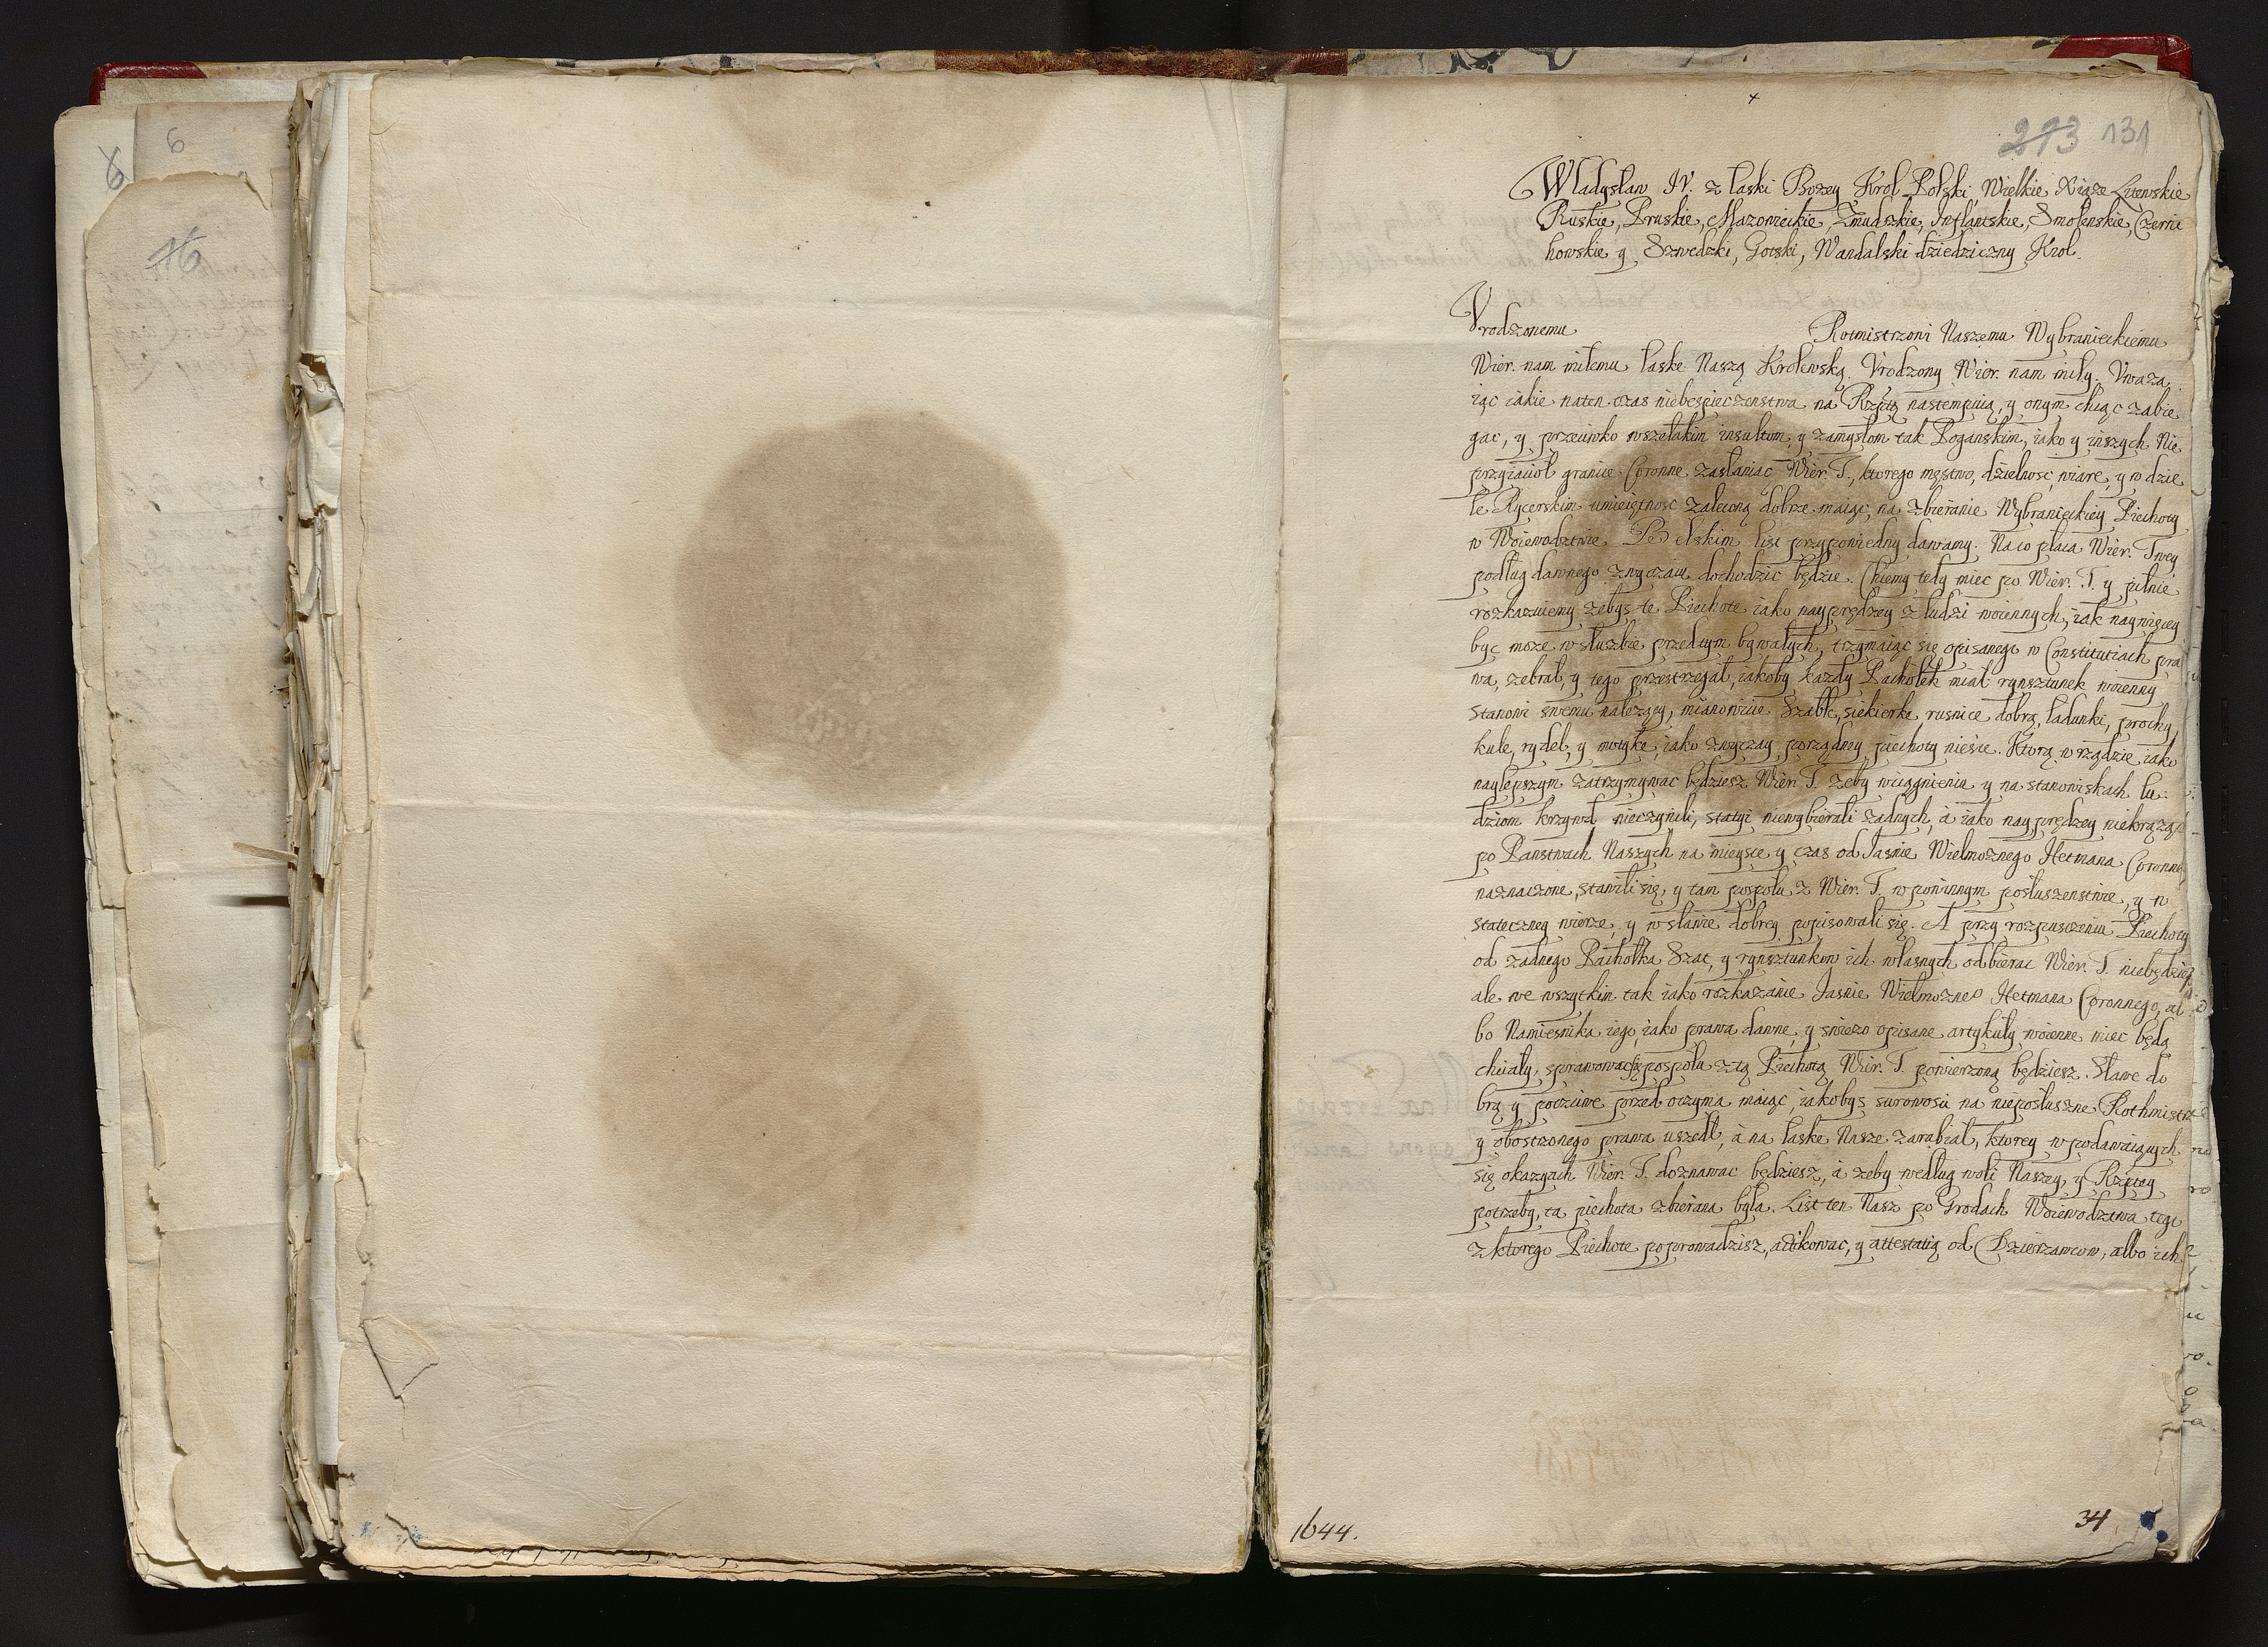 6
6
16
x
273 131
Wladysław IV. z łaski Bozey Krol Polski Wielkie Xiąże Litewskie
Ruskie, Pruskie, Mazowieckie, Żmudzkie, Inflantskie, Smolenskie, Czernie
howskie y Szwedzki, Gotski, Wandalski dziedziczny Krol.
Vrodzonemu Rotmistrzowi Naszemu Wybranieckiemu
Wier. nam miłemu łaske Naszą Krolewską. Vrodzony Wier. nam miły. Vważa
iąc iakie naten czas niebespieczenstwa na Rzptą nastempuią, y onym chcąc zabie
gac, y przeciwko wszelakim insultom, y zamysłom tak Poganskim, iako y inszych Nie
przyiacioł granice Coronne zasłaniaiąc Wier. T., ktorego męstwo, dzielnosc, wiare, y w dzie
le Rycerskim umieiętnosc zaleconą dobrze maiąc, na zbieranie Wybranieckiey Piechoty
w Woiewodztwie Bełskim list przypowiedny dawamy. Na co płaca Wier. Twey
podług dawnego zwyczaiu dochodzic będzie. Chcemy tedy miec po Wier. T. y pilnie
roskazuiemy zebys te Piechote iako nayprędzey z ludzi woiennych, iak naywięcey
byc moze w służbie przedtym bywałych, trzymaiąc się opisanego w Constitutiach pra
wa, zebrał, y tego przestrzegał, iakoby kazdy Pachołek miał rynsztunek woienny
stanowi swemu nalezący, mianowicie Szable, siekierke, rusnice dobrą, ładunki, prochy,
kule, rydel, y motyke, iako zwyczay porządney piechoty niesie. Ktorą w rządzie iako
naylepszym zatrzymywac będziesz Wier. T. zeby wciągnieniu y na stanowiskach lu
dziom krzywd nieczynili, statyi niewybierali zadnych, á iako nayprędzey niekrąząc
po Panstwach Naszych na mieysce y czas od Jasnie Wielmoznego Hetmana Coronne
naznaczone, stawili się, y tam pospołu z Wier. T. w powinnym posłuszenstwie, y w
stateczney wierze, y w sławie dobrey popisowali się. A przy rozpusczeniu Piechoty
od zadnego Pachołka Szat, y rynsztunkow ich własnych odbierac Wier. T. niebędziesz
ale we wszytkim tak iako roskazanie Jasnie Wielmoznego Hetmana Coronnego, al
bo Namiesnika iego, iako prawa dawne, y swiezo opisane artykuły woienne miec będą
chciały, sprawowac się pospołu z tą Piechotą Wier. T. powierzoną będziesz. Sławe do
brą y poczciwe przed oczyma maiąc, iakobys surowosci na nieposłuszne Rothmistrze
y obostrzonego prawa uszedł, á na łaske Nasze zarabiał, ktorey w podawaiących
się okazyach Wier. T. doznawac będziesz, á zeby według woli Naszey, y Rzptey
potrzeby, ta piechota zbierana była. List ten Nasz po Grodach Woiewodztwa tego
z ktorego Piechote poprowadzisz, actikowac, y attestatią od Dzierzawcow, albo ich
1644.
34